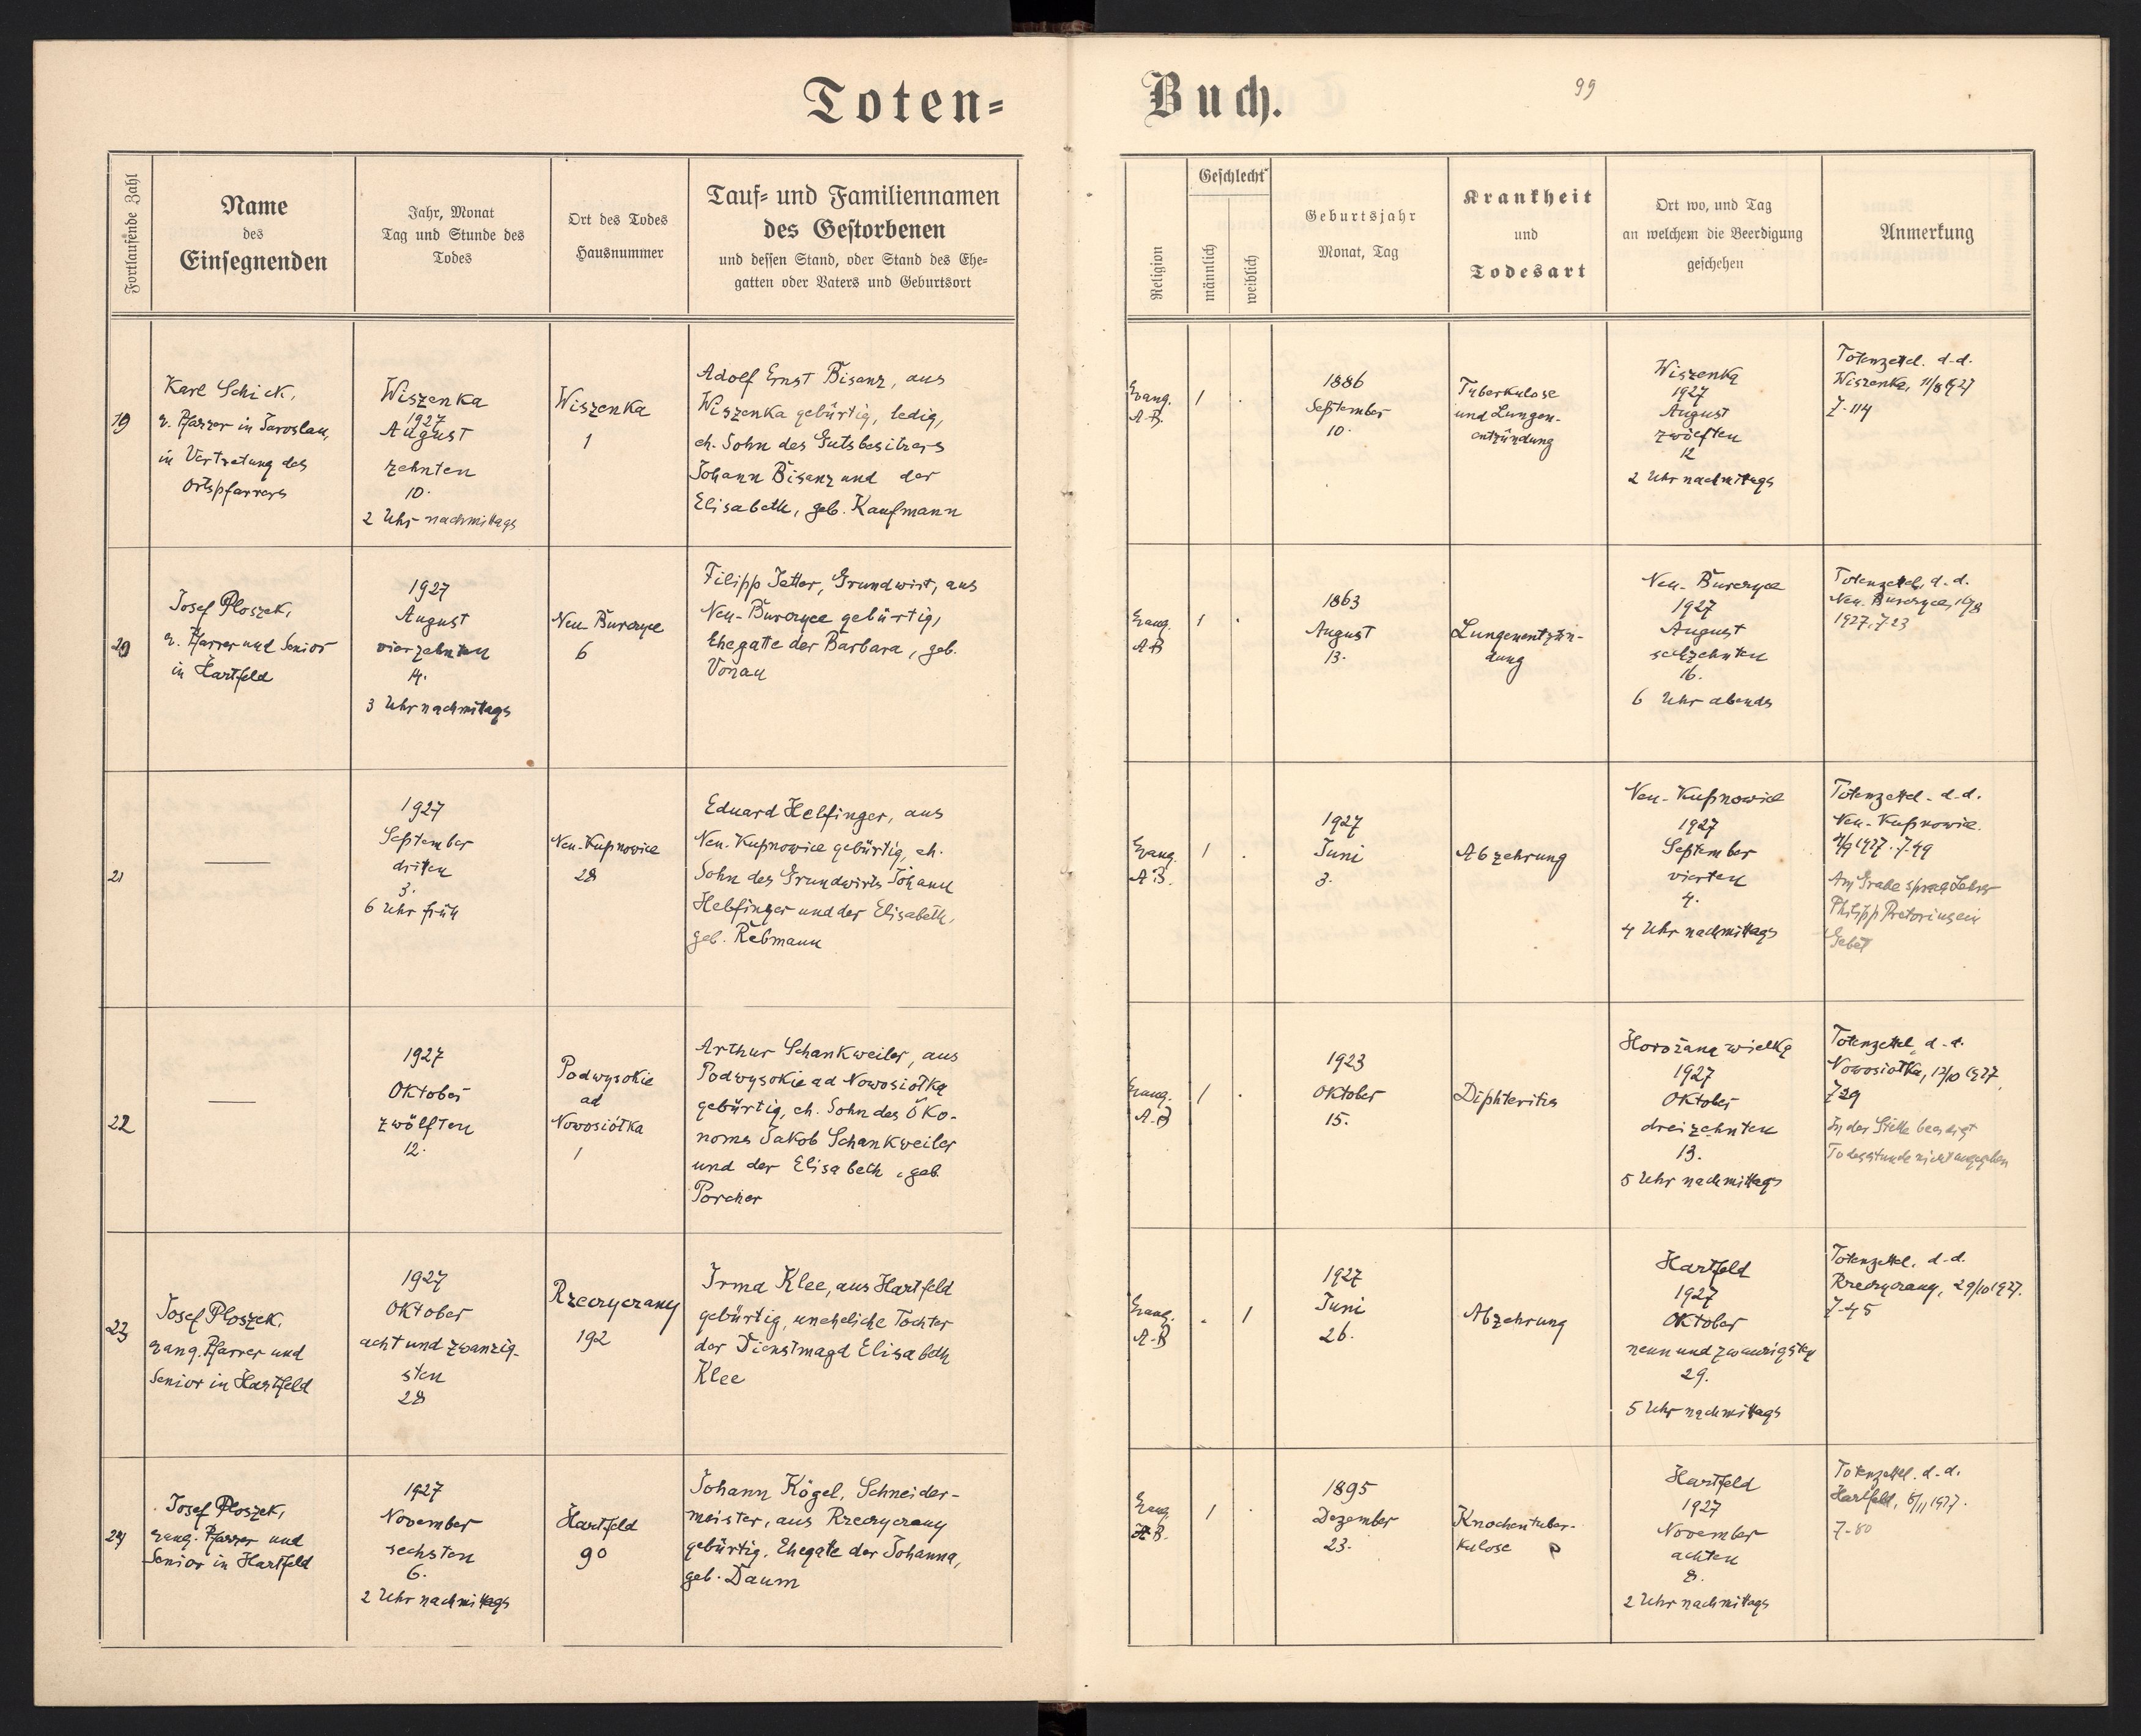 Toten=
Buch.
99
Fortlaufende Zahl
Name
des
Einsegnenden
Jahr, Monat
Tag und Stunde des
Todes
Ort des Todes
Hausnummer
Tauf= und Familiennamen
des Gestorbenen
und dessen Stand, oder Stand des Ehe=
gatten oder Vaters und Geburtsort
Religion
Geschlecht
männlich
weiblich
Geburtsjahr
Monat, Tag
Krankheit
und
Todesart
Ort wo, und Tag
an welchem die Beerdigung
geschehen
Anmerkung
19
Karl Schick,
e. Pfarrer in Jaroslau,
in Vertretung des
Ortspfarrers
Wiszenka
1927
August
zehnten
10.
2 Uhr nachmittags
Wiszenka
1
Adolf Ernst Bisanz, aus
Wiszenka gebürtig, ledig,
eh. Sohn des Gutsbesitzers
Johann Bisanz und der
Elisabeth, geb. Kaufmann
Evang.
A.B.
1
.
1886
September
10.
Tuberkulose
und Lungen-
entzündung
Wiszenka
1927
August
zwölften
12
2 Uhr nachmittags
Totenzettel. d.d.
Wiszenka, 11/8 1927
Z. 114
20
Josef Ploszek,
e. Pfarrer und Senior
in Hartfeld
1927
August
vierzehnten
14.
3 Uhr nachmittags
Neu-Burczyce
6
Filipp Jetter, Grundwirt, aus
Neu-Burczyce gebürtig,
Ehegatte der Barbara, geb.
Vonau
Evang.
A.B
1
.
1863
August
13.
Lungenentzün-
dung
Neu-Burczyce
1927
August
sechzehnten
16.
6 Uhr abends
Totenzettel, d.d.
Neu-Burczyce, 16/8
1927, Z 23
21
—
1927
September
dritten
3.
6 Uhr früh
Neu-Kupnowice
28
Eduard Helfinger, aus
Neu-Kupnowice gebürtig, eh.
Sohn des Grundwirts Johann
Helfinger und der Elisabeth,
geb. Rebmann
Evang.
A.B.
1
.
1927
Juni
3.
Abzehrung
Neu-Kupnowice
1927
September
vierten
4.
4 Uhr nachmittags
Totenzettel. d.d.
Neu-Kupnowice.
4/9 1927. Z. 49
Am Grabe sprach Lehrer
Philipp Pretorius ein
Gebet
22
—
1927
Oktober
zwölften
12.
Podwysokie
ad
Nowosiółka
1
Arthur Schankweiler, aus
Podwysokie ad Nowosiółka
gebürtig, eh. Sohn des Öko-
noms Jakob Schankweiler
und der Elisabeth, geb.
Porcher
Evang.
A.B
1
.
1923
Oktober
15.
Diphteritis
Horożana wielka
1927
Oktober
dreizehnten
13.
5 Uhr nachmittags
Totenzettel, d.d.
Nowosiółka, 12/10 1927,
Z 29
In der Stille beerdigt
Todesstunde nicht angegeben
23
Josef Ploszek,
evang. Pfarrer und
Senior in Hartfeld
1927
Oktober
acht und zwanzig-
sten
28
Rzeczyczany
192
Irma Klee, aus Hartfeld
gebürtig, uneheliche Tochter
der Dienstmagd Elisabeth
Klee
Evang.
A.B
.
1
1927
Juni
26.
Abzehrung
Hartfeld
1927
Oktober
neun und zwanzigsten
29.
5 Uhr nachmittags
Totenzettel. d.d.
Rzeczyczany, 29/10 1927.
Z. 45
24
Josef Ploszek,
evang. Pfarrer und
Senior in Hartfeld
1927
November
sechsten
6.
2 Uhr nachmittags
Hartfeld
90
Johann Kögel, Schneider-
meister, aus Rzeczyczany
gebürtig. Ehegatte der Johanna,
geb. Daum
Evang.
A.B.
1
.
1895
Dezember
23.
Knochentuber-
kulose
Hartfeld
1927
November
achten
8.
2 Uhr nachmittags
Totenzettel. d.d.
Hartfeld, 8/11 1927.
Z. 80